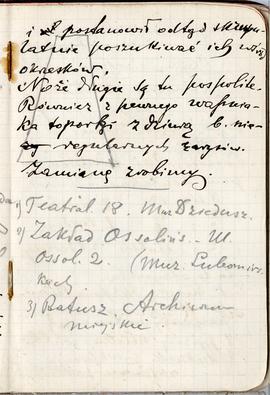 i postanowił odtąd skrupu-
latnie poszukiwać ich wśród
okresków.
Noże długie są tu pospolite.
Również z pewnego wapnia-
ka toporki z dziurą b. nie-
regularnych zarysów.
Zamianę zrobimy.
1) Teatral 18. Muz Dziedusz.
2) Zakład Ossolińs. - Ul.
Ossol. 2. (Muz. Lubomirs.
kach
3) Ratusz. Archiwum
miejskie.